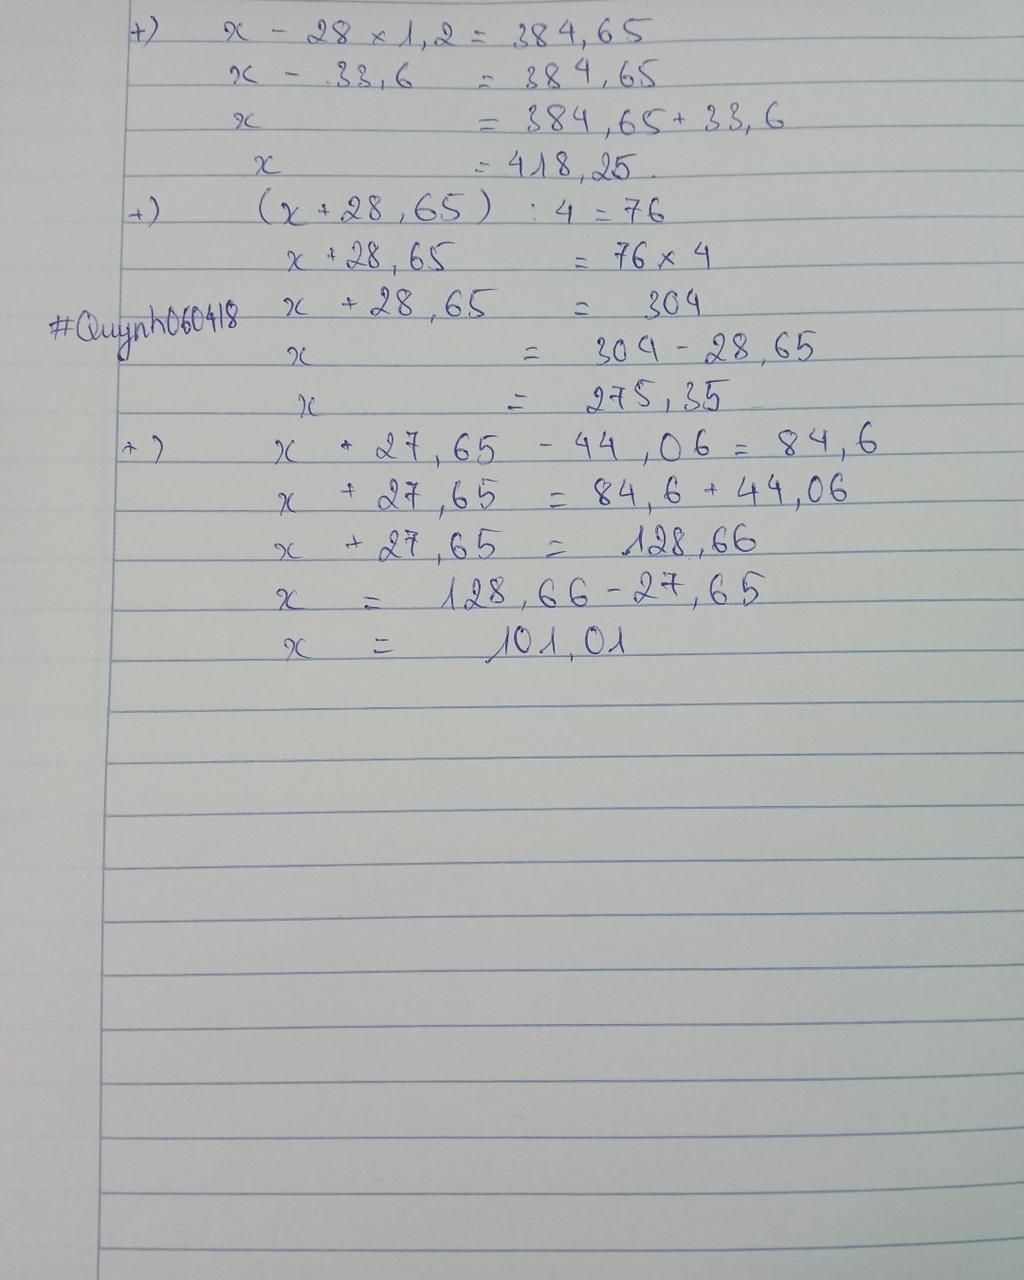 +) x - 28 × 1,2 = 384,65
x - 33,6 = 384,65
x = 384,65 + 33,6
x = 418,25
+) (x + 28,65) : 4 = 76
x + 28,65 = 76 × 4
x + 28,65 = 304
#Quynh060418
x = 304 - 28,65
x = 275,35
+) x + 27,65 - 44,06 = 84,6
x + 27,65 = 84,6 + 44,06
x + 27,65 = 128,66
x = 128,66 - 27,65
x = 101,01